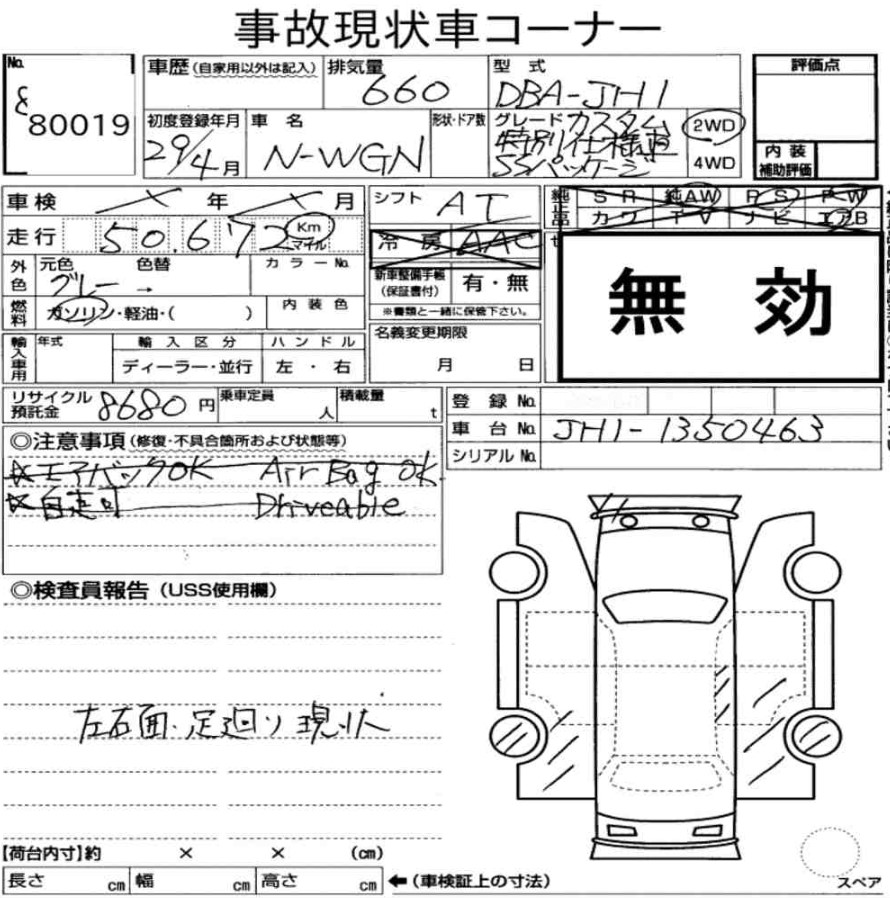 事故現状車コーナー
No.
80019
車歴(自家用以外は記入)
排気量
660
型式
DBA-JH1
評価点
初度登録年月
29/4月
車名
N-WGN
形状・ドア数
グレード カスタム
特別仕様車
SSパッケージ
2WD
4WD
内装
補助評価
車検 × 年 × 月
シフト AT
純正品
SR 純AW PS PW
カワ TV ナビ エアB
走行 50,672 Km マイル
冷房 AAC
外色
元色 色替 カラーNo.
グレー →
新車整備手帳
(保証書付)
有・無
※書類と一緒に保管下さい。
無効
燃料
ガソリン・軽油・( )
内装色
輸入車用
年式
輸入区分
ハンドル
ディーラー・並行
左・右
名義変更期限
月 日
リサイクル
預託金
8680円
乗車定員
人
積載量
t
登録No.
車台No. JH1-1350463
シリアルNo.
◎注意事項(修復・不具合箇所および状態等)
☆エアバックOK Air Bag OK
☆自走可 Driveable
◎検査員報告(USS使用欄)
左右面・足廻り現状
【荷台内寸】約 × × (cm)
長さ cm 幅 cm 高さ cm ←(車検証上の寸法)
スペア